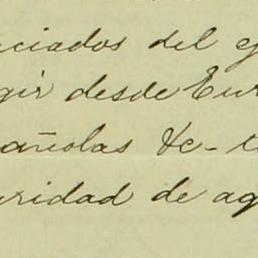 nciados del ej
gir desde Eur
añolas &c- t
uridad de ag